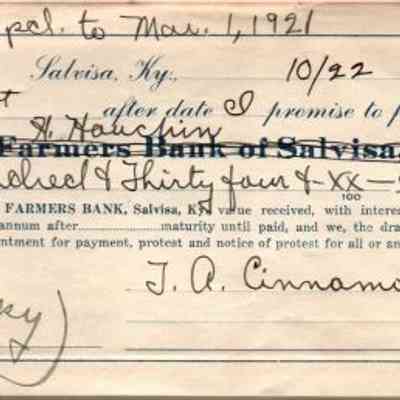 pd. to Mar. 1, 1921
Salvisa, Ky., 10/22
after date I promise to p
H. Houchin
Farmers Bank of Salvisa,
ndred & Thirty four & XX
100
FARMERS BANK, Salvisa, Ky. value received, with interes
annum after maturity until paid, and we, the dra
ntment for payment, protest and notice of protest for all or an
T. A. Cinnamo
ky)